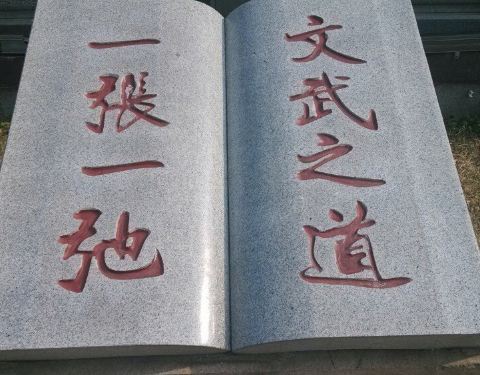 文武之道
一張一弛